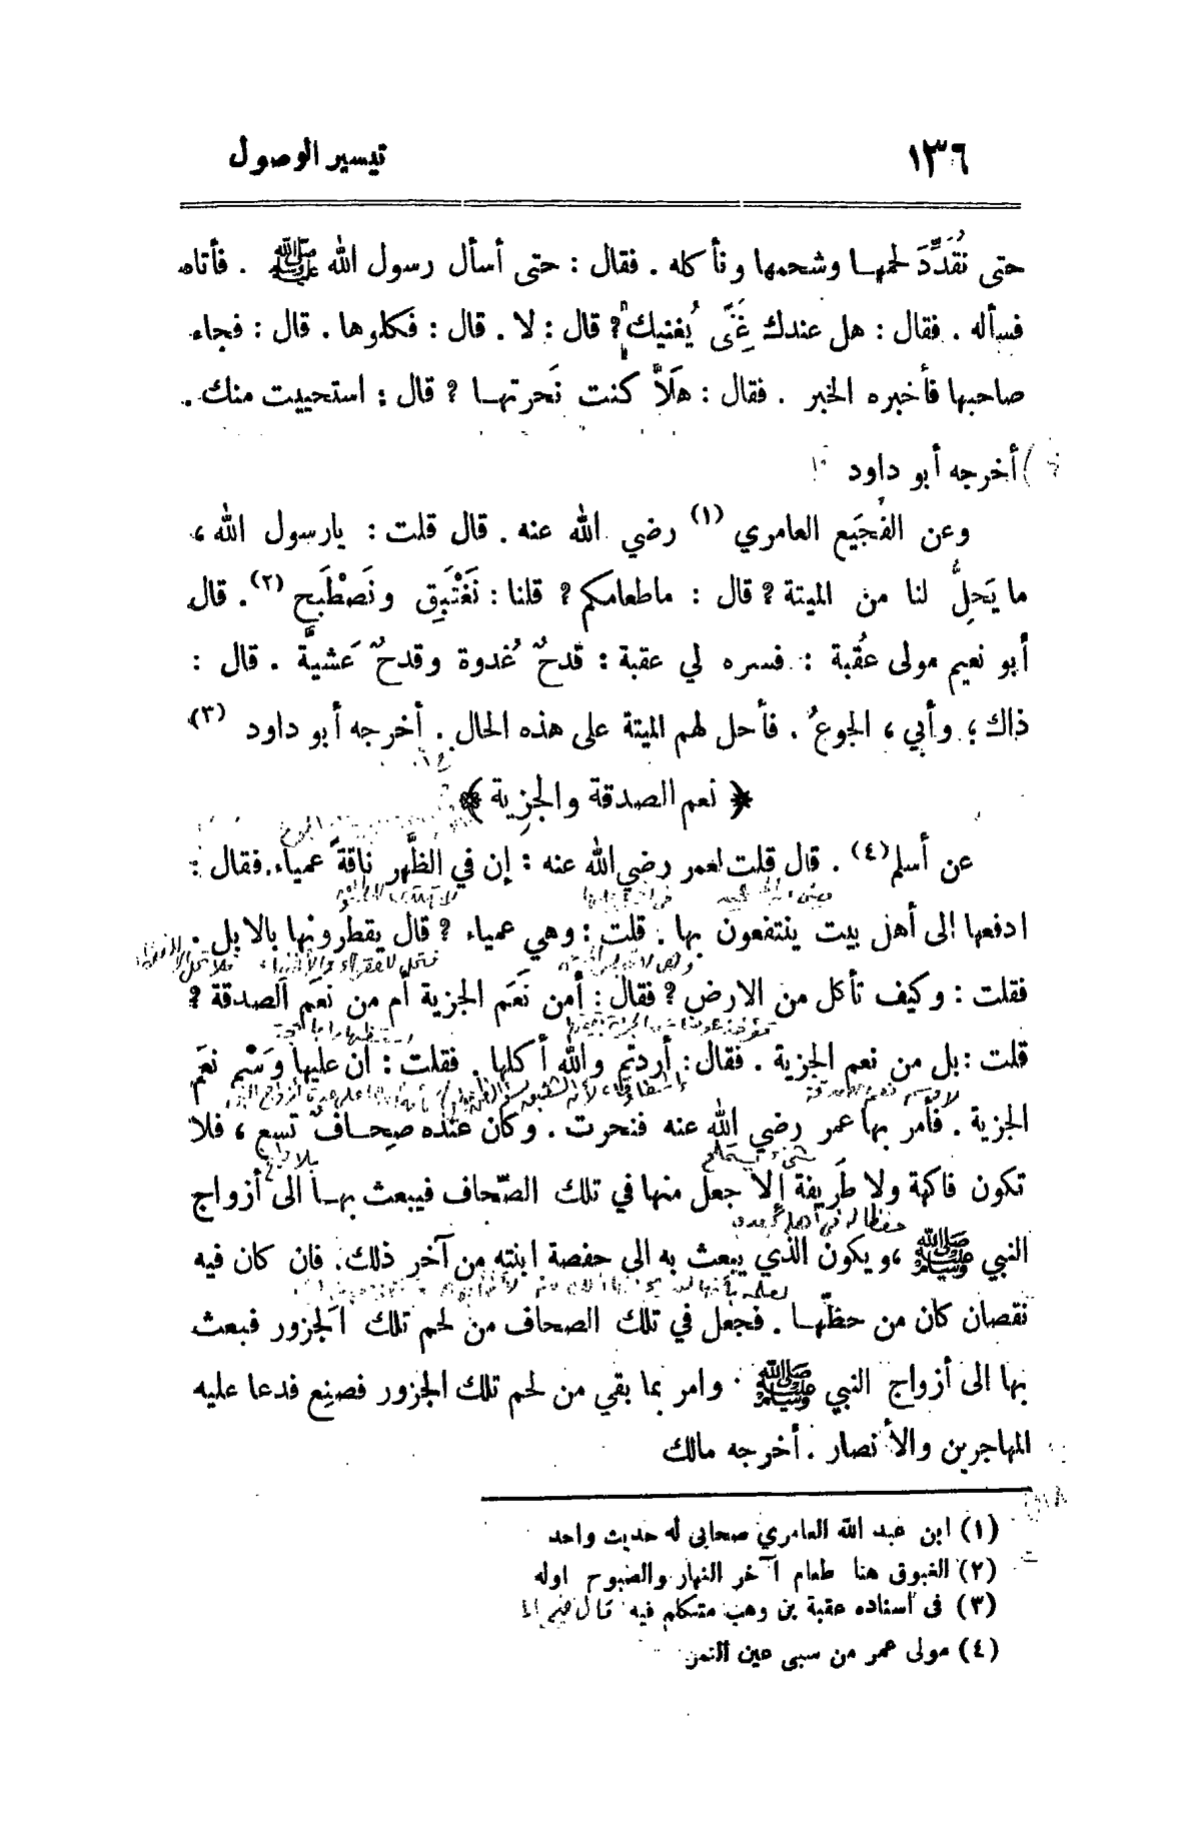 ١٣٦ تيسير الوصول
حتى نُقَدِّدَ لحمها وشحمها ونأكله . فقال : حتى أسأل رسول الله ﷺ . فأتاه
فسأله . فقال : هل عندك غِنًى يُغنيك ? قال : لا . قال : فكلوها . قال : فجاء
صاحبها فأخبره الخبر . فقال : هَلاَّ كنت نَحرتها ? قال : استحييت منك .
أخرجه أبو داود
وعن الفُجَيع العامري (١) رضي الله عنه . قال قلت : يارسول الله ،
ما يَحلُّ لنا من الميتة ? قال : ماطعامكم ? قلنا : نَغْتَبِق ونَصْطَبح (٢) . قال
أبو نعيم مولى عُقبة : فسره لي عقبة : قدحٌ غُدوة وقدحٌ عَشيَّة . قال :
ذاك ؛ وأبي ، الجوعُ . فأحل لهم الميتة على هذه الحال . أخرجه أبو داود (٣)
﴿ نعم الصدقة والجزية ﴾
عن أسلم (٤) . قال قلت لعمر رضي الله عنه : إن في الظَّهر ناقةً عمياء . فقال :
ادفعها الى أهل بيت ينتفعون بها . قلت : وهي عمياء ? قال يقطرونها بالابل .
فقلت : وكيف تأكل من الارض ? فقال : أمن نَعَم الجزية أم من نَعَم الصدقة ?
قلت : بل من نعم الجزية . فقال : أردتم والله أكلها . فقلت : ان عليها وَسْم نعَم
الجزية . فأمر بها عمر رضي الله عنه فنحرت . وكان عنده صِحاف تسع ، فلا
تكون فاكهة ولا طَريفة إلا جعل منها في تلك الصّحاف فيبعث بها الى أزواج
النبي ﷺ ، ويكون الذي يبعث به الى حفصة ابنته من آخر ذلك . فان كان فيه
نقصان كان من حظّها . فجعل في تلك الصحاف من لحم تلك الجَزور فبعث
بها الى أزواج النبي ﷺ . وامر بما بقي من لحم تلك الجزور فصنِع فدعا عليه
المهاجرين والأنصار . أخرجه مالك
(١) ابن عبد الله العامري صحابي له حديث واحد
(٢) الغبوق هنا طعام آخر النهار والصبوح اوله
(٣) فى اسناده عقبة بن وهب متكلم فيه
(٤) مولى عمر من سبى عين التمر